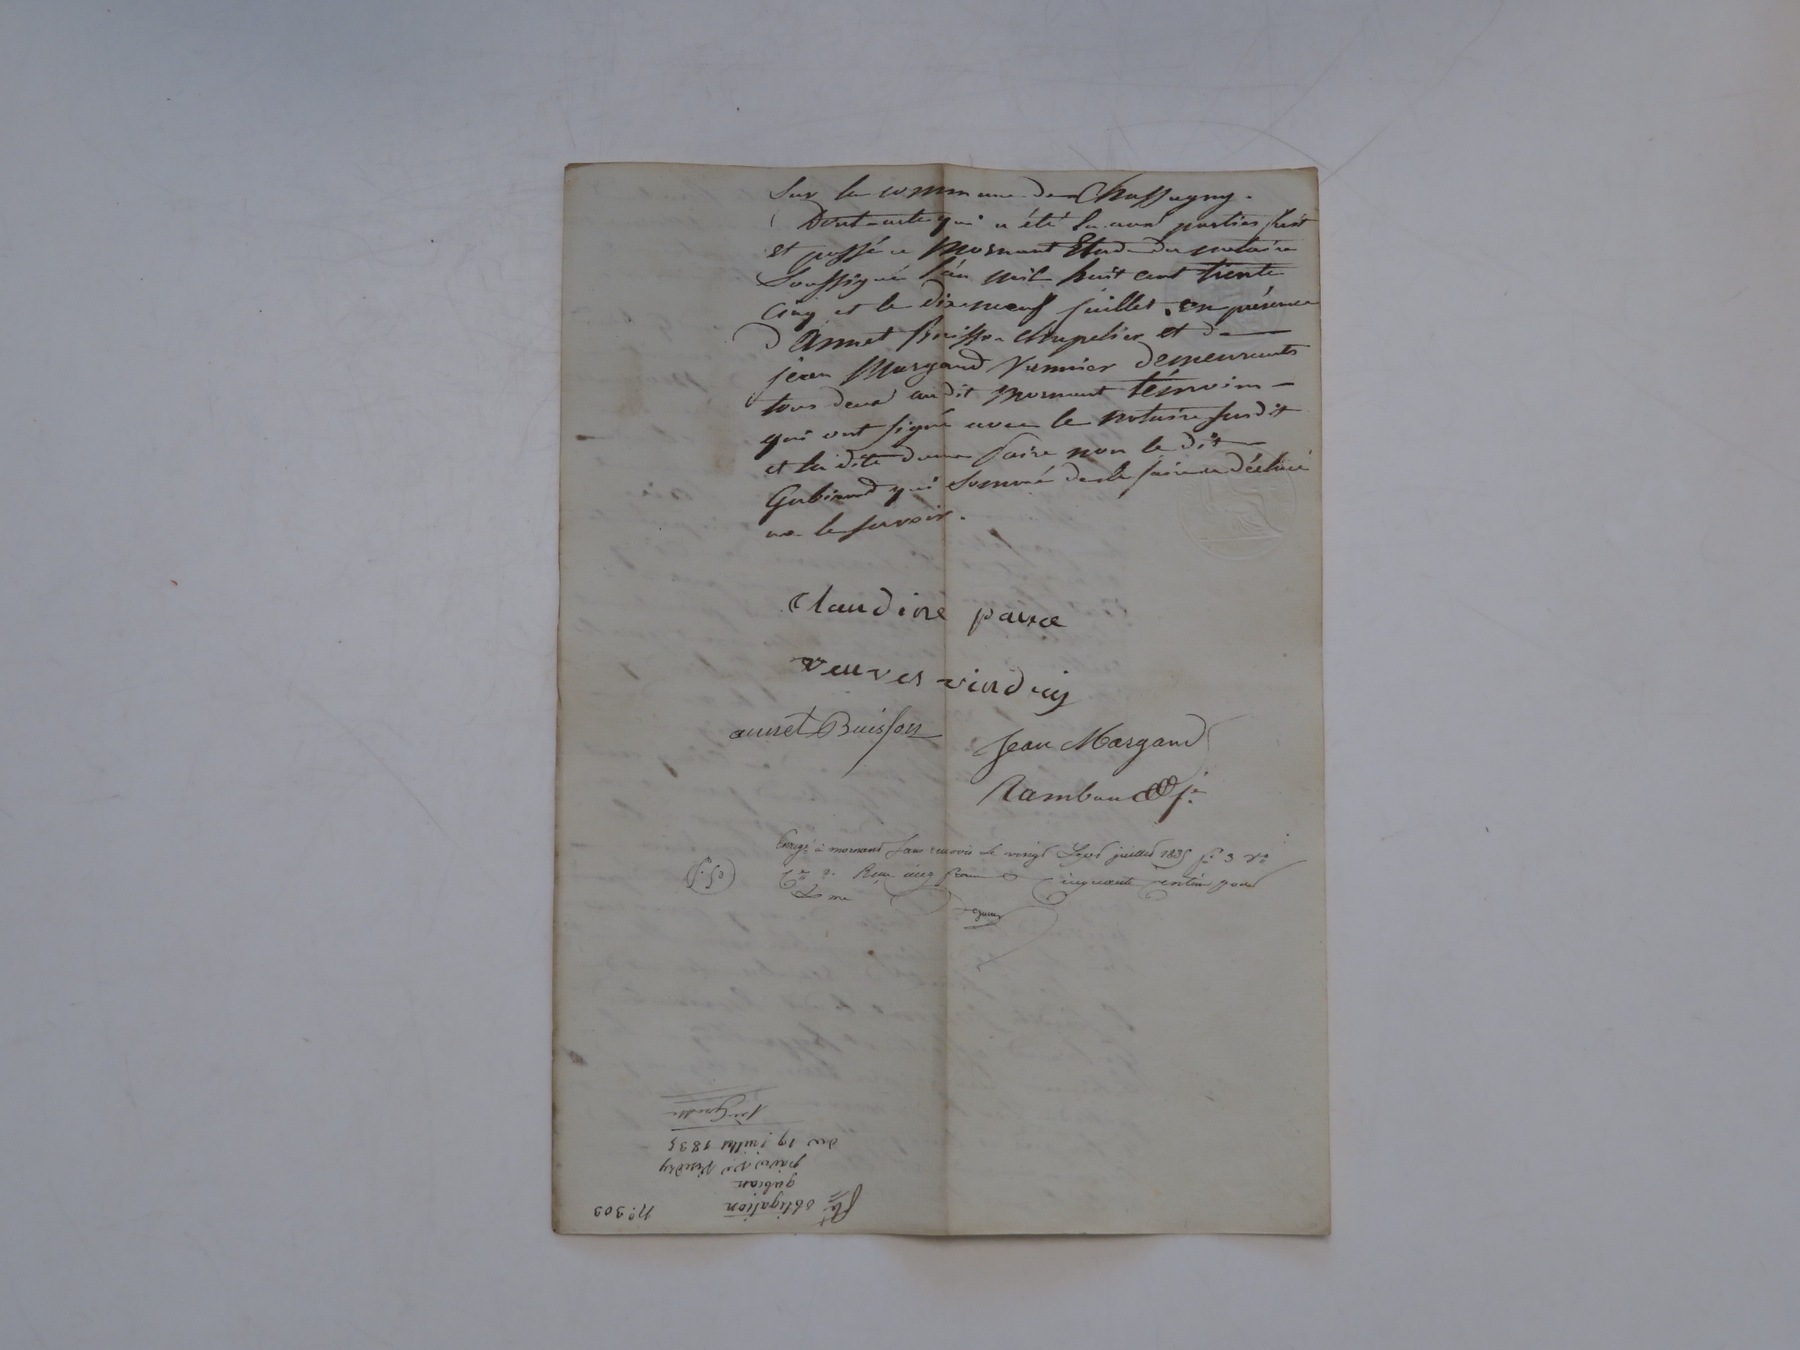 Sur la commune de Chassagny.
Dont acte qui a été lu aux parties fait
et passé a Mornant Etude du notaire
Soussigné l'an mil huit cent trente
cinq et le dixneuf juillet. en présence
d'Annet Buisson chapelier et de
jean Margand demeurants
tous deux au dit Mornant témoins
qui ont signé avec le notaire susdit
et la dite dame Paire non le dit
Gubiand qui sommé de le faire a déclaré
ne le savoir.
Claudine paire
veuves vindry
annet Buisson
Jean Margand
Rambaud jne
à mornant sans renvois le vingt Sept juillet 1835 f° 3 v°
Reçu cinq francs cinquante centimes pour
5.50
N° 303
obligation
gubian
paire Ve Vindry
du 19 juillet 1835